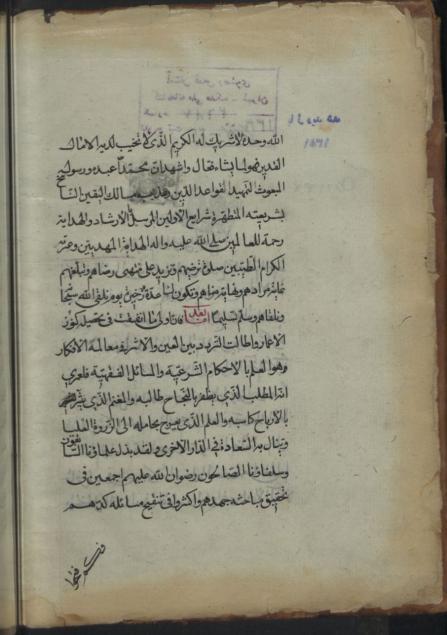 الله وحده لا شريك له الكريم الذى لا تخيب لديه الامال
القدير فهو لما يشاء فعال واشهد ان محمدا عبده ورسوله
المبعوث لتمهيد قواعد الدين وتهذيب مسالك اليقين الناسخ
بشريعته المطهرة شرايع الاولين المرسل بالارشاد والهداية
رحمة للعالمين صلى الله عليه واله الهداية المهديين وعترته
الكرام الطيبين صلوة ترضيهم وتزيد على منتهى رضاهم وتبلغهم
غاية مرادهم ونهاية مناهم وتكون لنا عدة وذخيرة يوم نلقى الله سبحانه
ونلقاهم وسلم تسليما وبعد فان اولى ما انفقت فى تحصيله كنوز
الاعمار واطالت التردد بين العين والاثر فى معالمه الافكار
هو العلم بالاحكام الشرعية والمسائل الفقهية فلعمرى
انه المطلب الذى يظفر بالنجاح طالبه والمغنم الذى يبشر
بالارباح كاسبه والعلم الذى يعرج بحامله الى الذروة العليا
وينال به السعادة فى الدار الاخرى ولقد بذل علماؤنا السابقون
وسلفنا الصالحون رضوان الله عليهم اجمعين فى
تحقيق مباحثه جهدهم واكثروا فى تنقيح مسائله كدهم